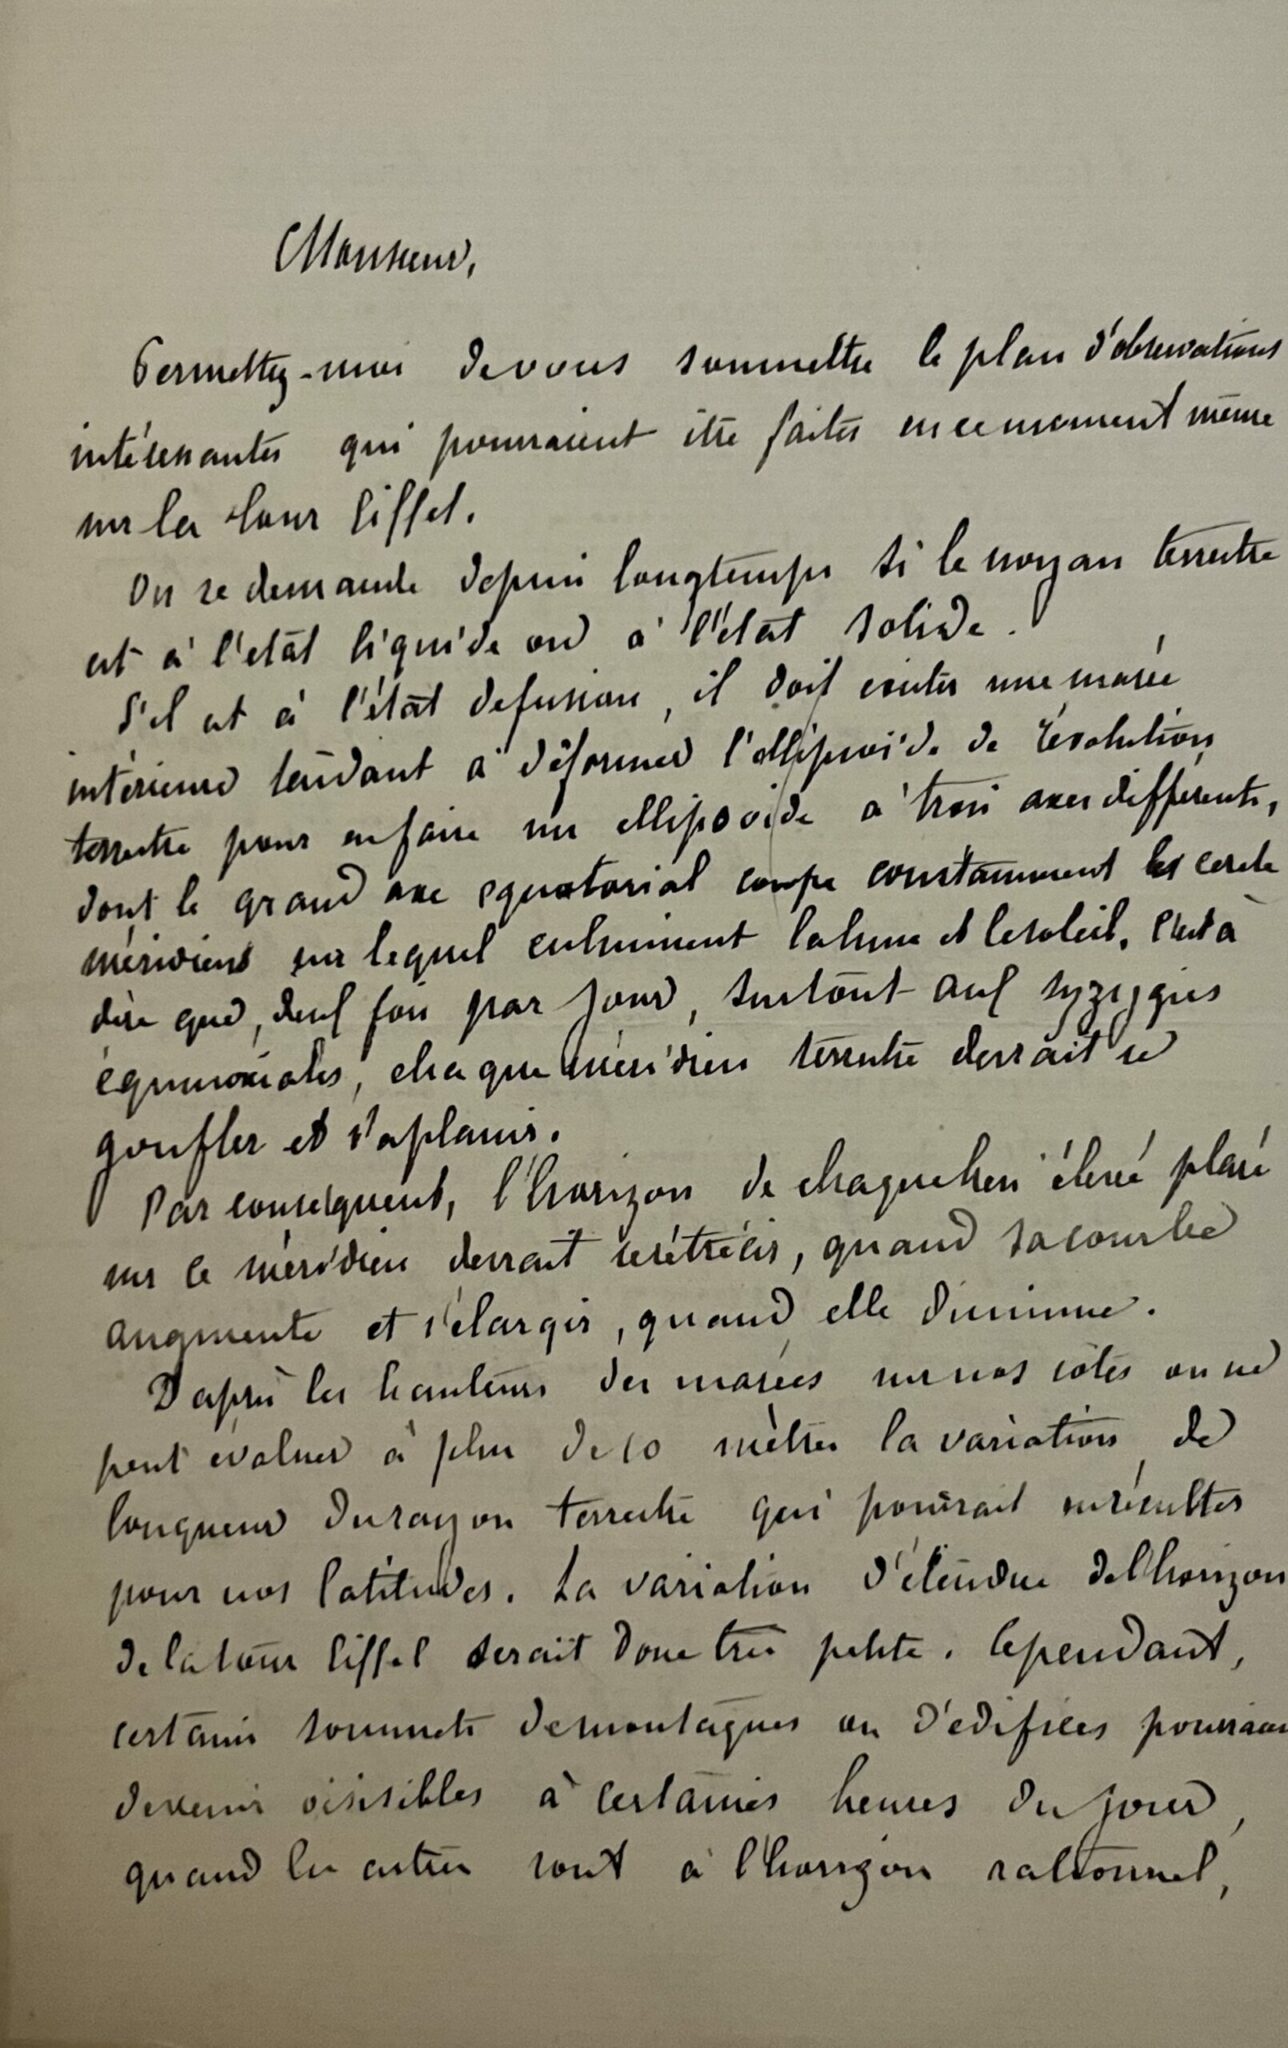 Monsieur,
Permettez-moi de vous soumettre le plan d'observations
intéressantes qui pourraient être faites en ce moment même
sur la tour Eiffel.
On se demande depuis longtemps si le noyau terrestre
est à l'état liquide ou à l'état solide.
S'il est à l'état de fusion, il doit exister une marée
intérieure tendant à déformer l'ellipsoïde de révolution
terrestre pour en faire un ellipsoïde à trois axes différents,
dont le grand axe équatorial coupe constamment le cercle
méridien sur lequel culminent la lune et le soleil, c'est à
dire que, deux fois par jour, surtout aux syzygies
équinoxiales, chaque méridien terrestre devrait se
gonfler et s'aplanir.
Par conséquent, l'horizon de chaque lieu élevé placé
sur ce méridien devrait se rétrécir, quand sa courbe
augmente et s'élargir, quand elle diminue.
D'après les hauteurs des marées sur nos côtes on ne
peut évaluer à plus de 10 mètres la variation de
longueur du rayon terrestre qui pourrait en résulter
pour nos latitudes. La variation d'étendue de l'horizon
de la tour Eiffel serait donc très petite. Cependant,
certains sommets de montagnes ou d'édifices pourraien
devenir visibles à certaines heures du jour,
quand les astres sont à l'horizon rationnel,